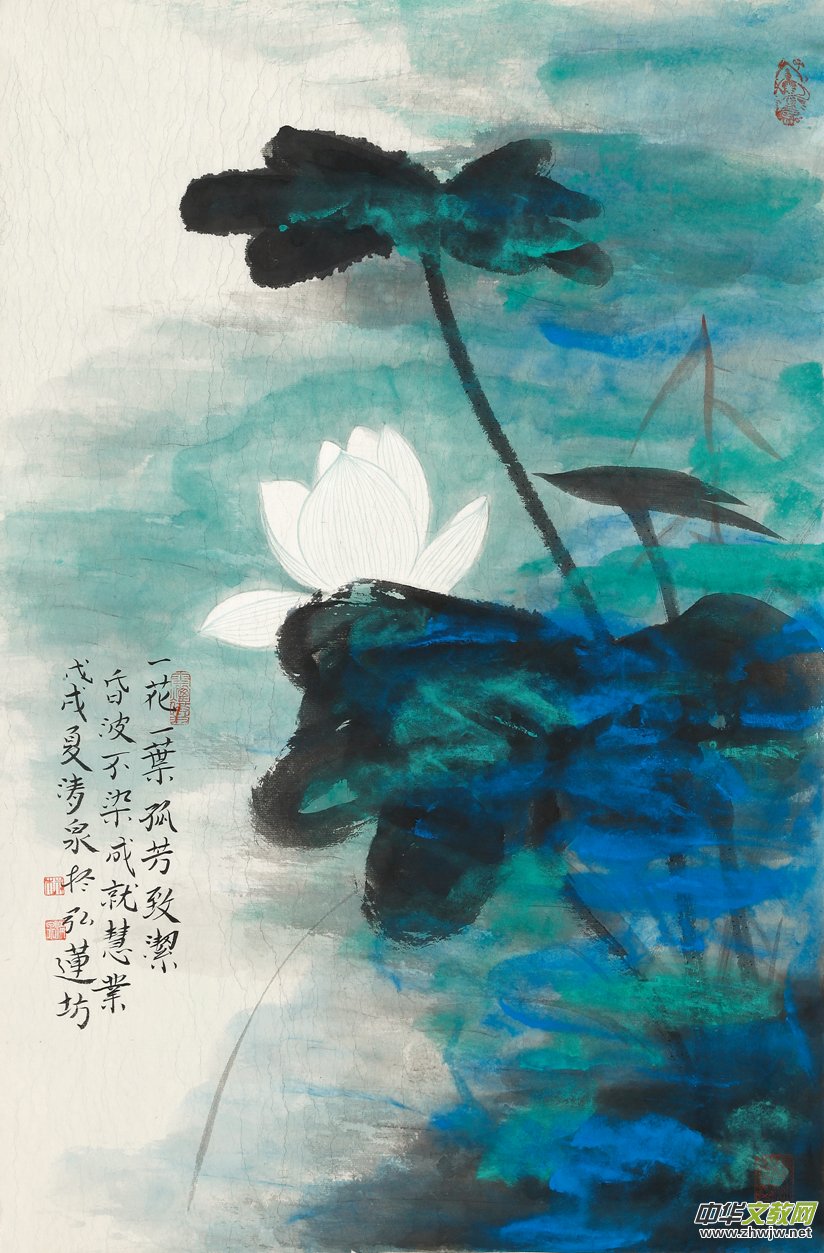 一花一葉孤芳致潔
昏波不染成就慧業
戊戌夏清泉於弘蓮坊
中华文教网
www.zhwjw.net